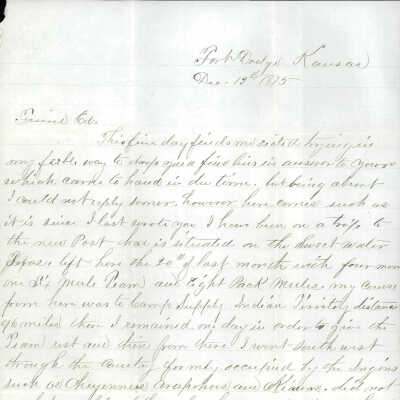 Fort Dodge, Kansas
Dec. 13th 1875
Friend Ed.
This fine day finds me seated trying in
my feble way to drop you a few lines in answer to yours
which came to hand in due time. but being absent
I could not reply sooner. however here comes such as
it is since I last wrote you I have been on a trip to
the new Post that is situated on the Sweet water
Texas. left here the 20th of last month with four men
one Six Mule Team and Eight Pack Mules, my course
from here was to Camp Supply Indian Territory distance
96 miles then I remained one day in order to give the
Team rest and then from there I went south west
through the Country formly occupied by the Ingins
such as Cheyennes Araphoes and Kiowas. did not